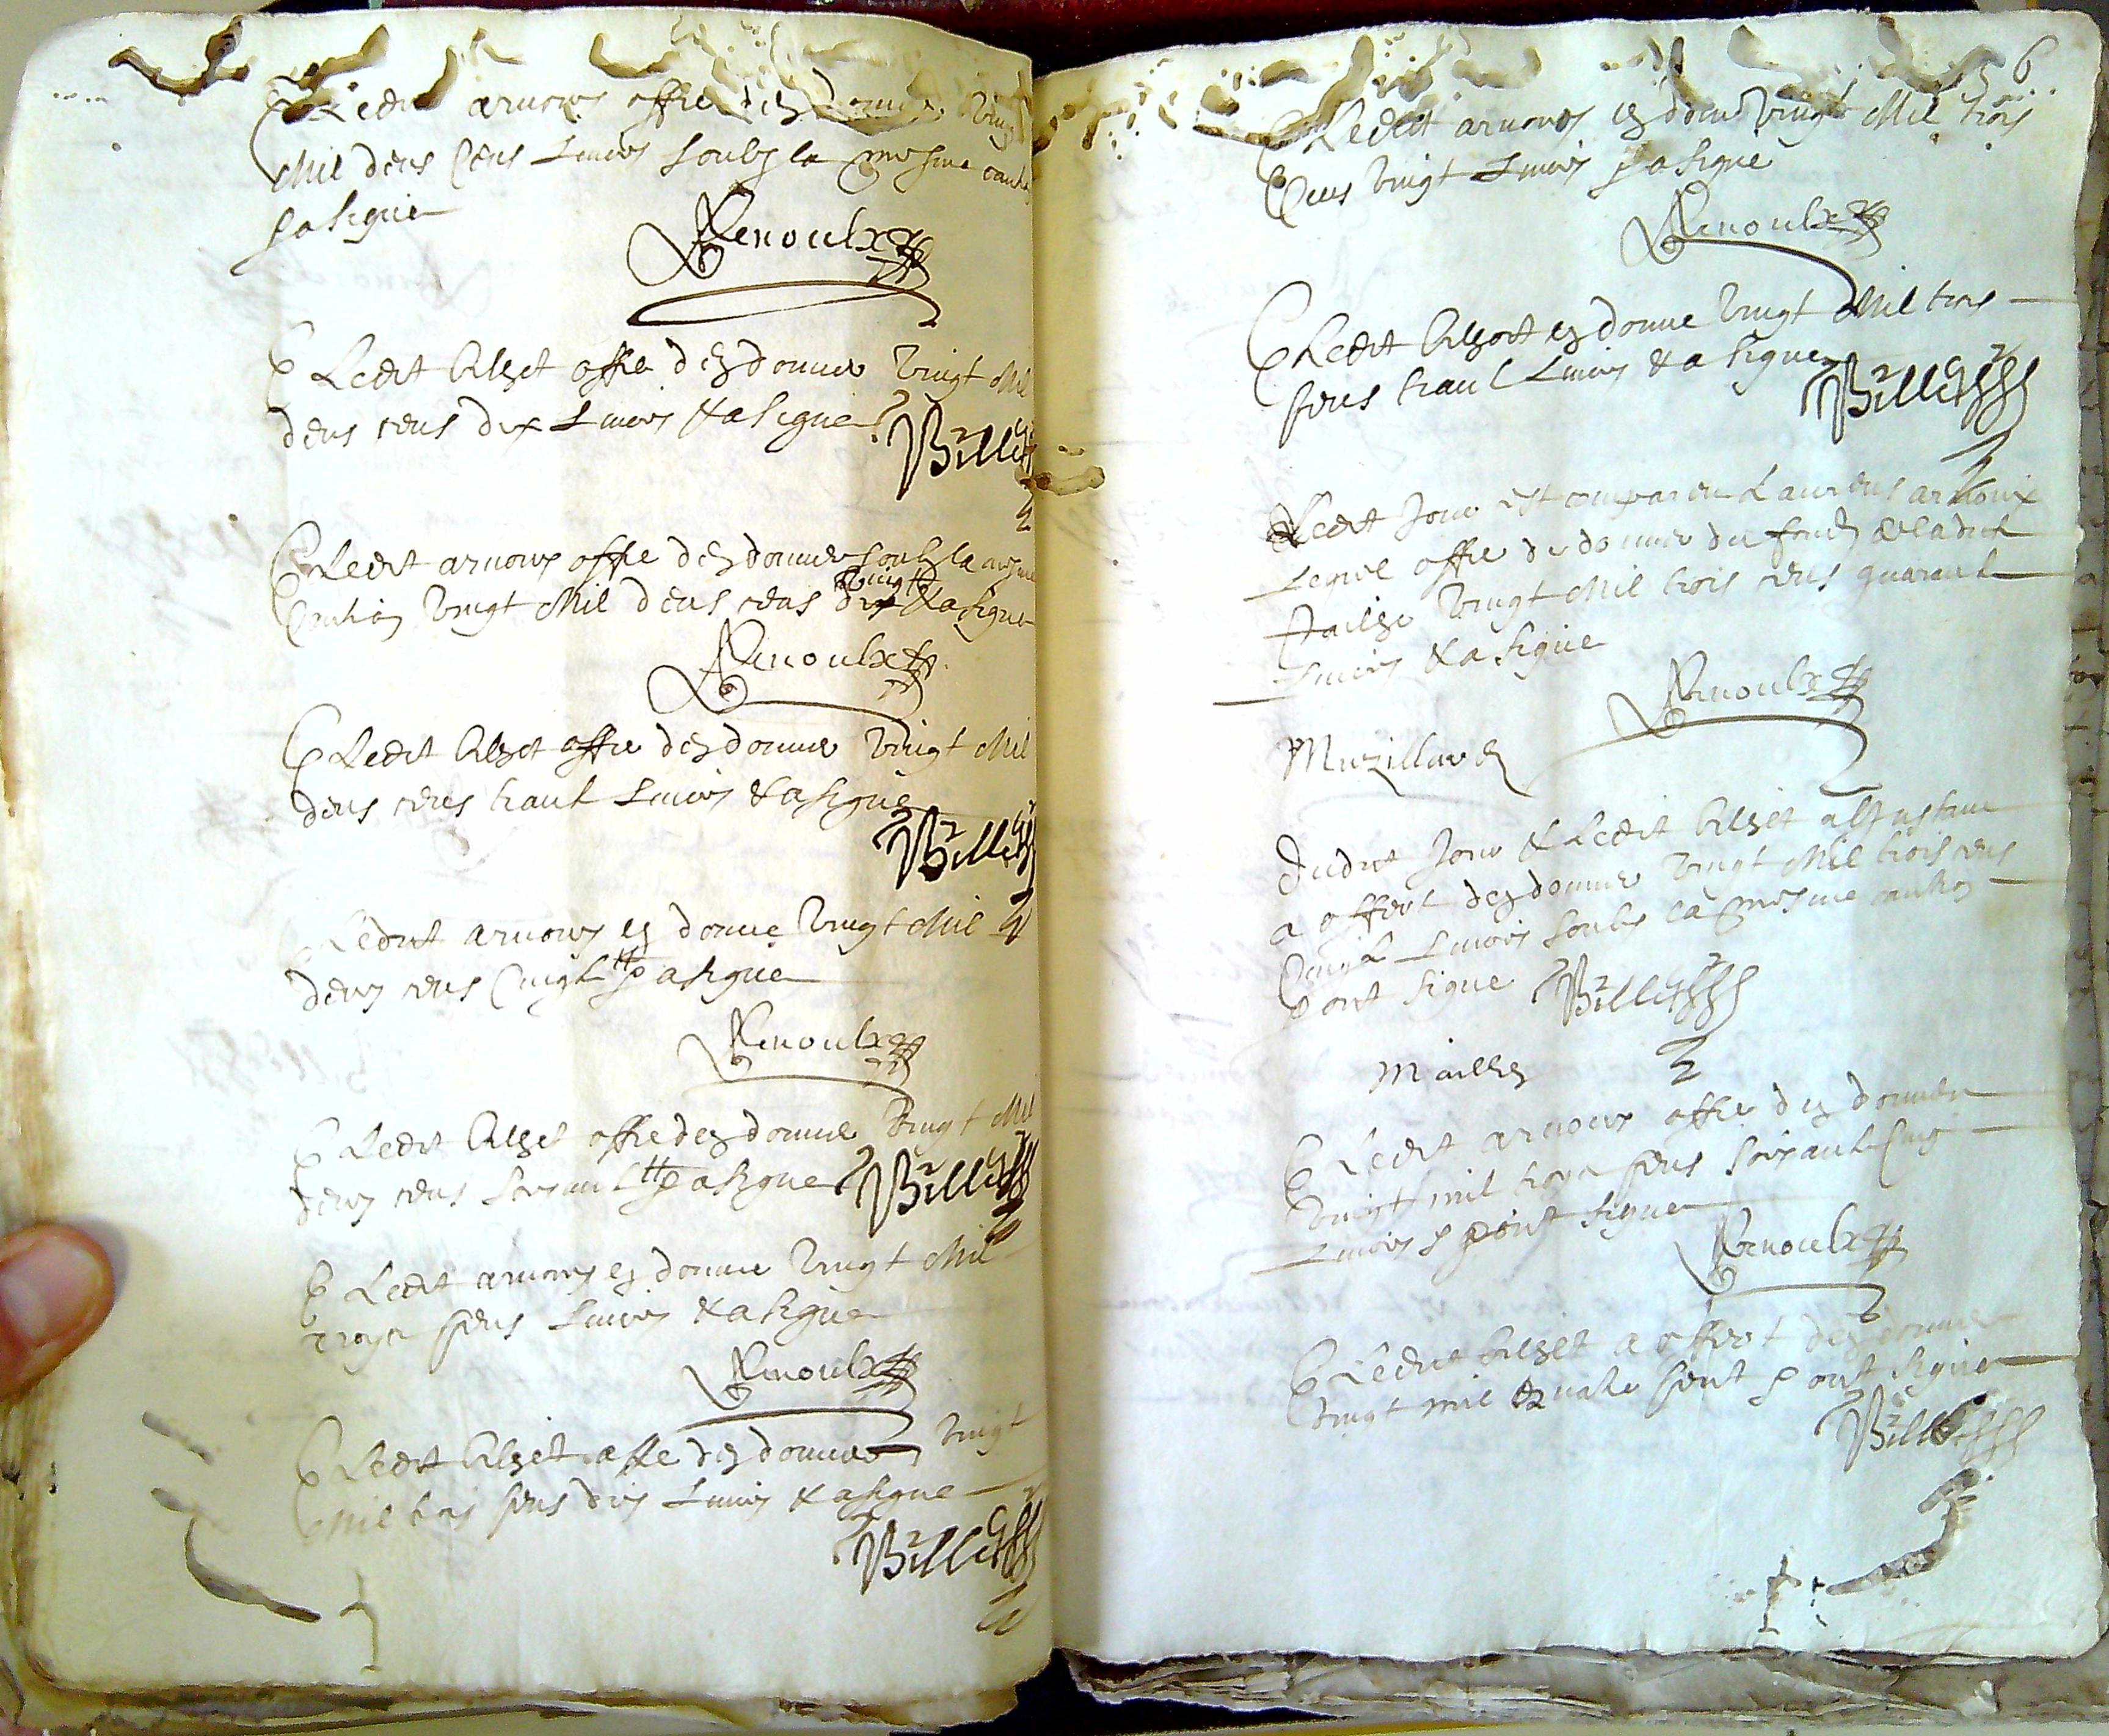 Ledit arnoux offre d'en donner vingt
Mil deus Cens Livres soubz la mesme caution
& a signé
ARnoulx
Ledit bilhet offre d'en donner vingt Mil
deus cens dix Livres & a signé
Billiet
Ledit arnoux offre d'en donner soubz la mesme
Caution vingt Mil deus cens vingt & a signé
ARnoulx
Ledit bilhet offre d'en donner vingt Mil
deus cens trante Livres & a signé
Billiet
Ledit arnoux en donne vingt Mil
deux cens Cinqte tt & a signé
ARnoulx
Ledit bilhet offre d'en donner vingt Mil
deux cens soixante tt & a signé Billiet
Ledit arnoux en donne vingt Mil
troys sens Livres & a signé
ARnoulx
Ledit bilhet offre d'en donner vingt
Mil trois sens dix Livres & a signé
Billiet
6
Ledit arnoux en donne vingt Mil trois
Cens vingt Livres & a signé
ARnoulx
Ledit bilhet en donne vingt Mil trois
sens trante Livres & a signé Billiet
Ledit Jour est comparu Laurens arnoux
Lequel offre de donner du fondz de ladite
Tailhe vingt Mil trois cens quarante
Livres & a signé
ARnoulx
Muzillard
Dudit Jour & Ledit bilhet
a offert d'en donner vingt Mil trois cens
Cinqte Livres soubz la mesme caution
& ont signé Billiet
Mailhes
Ledit arnoux offre d'en donner
vingt mil troys sens soixante Cinq
Livres & ont signé
ARnoulx
Ledit bilhet a offert d'en donner
vingt mil quatre sent & ont signé
Billiet